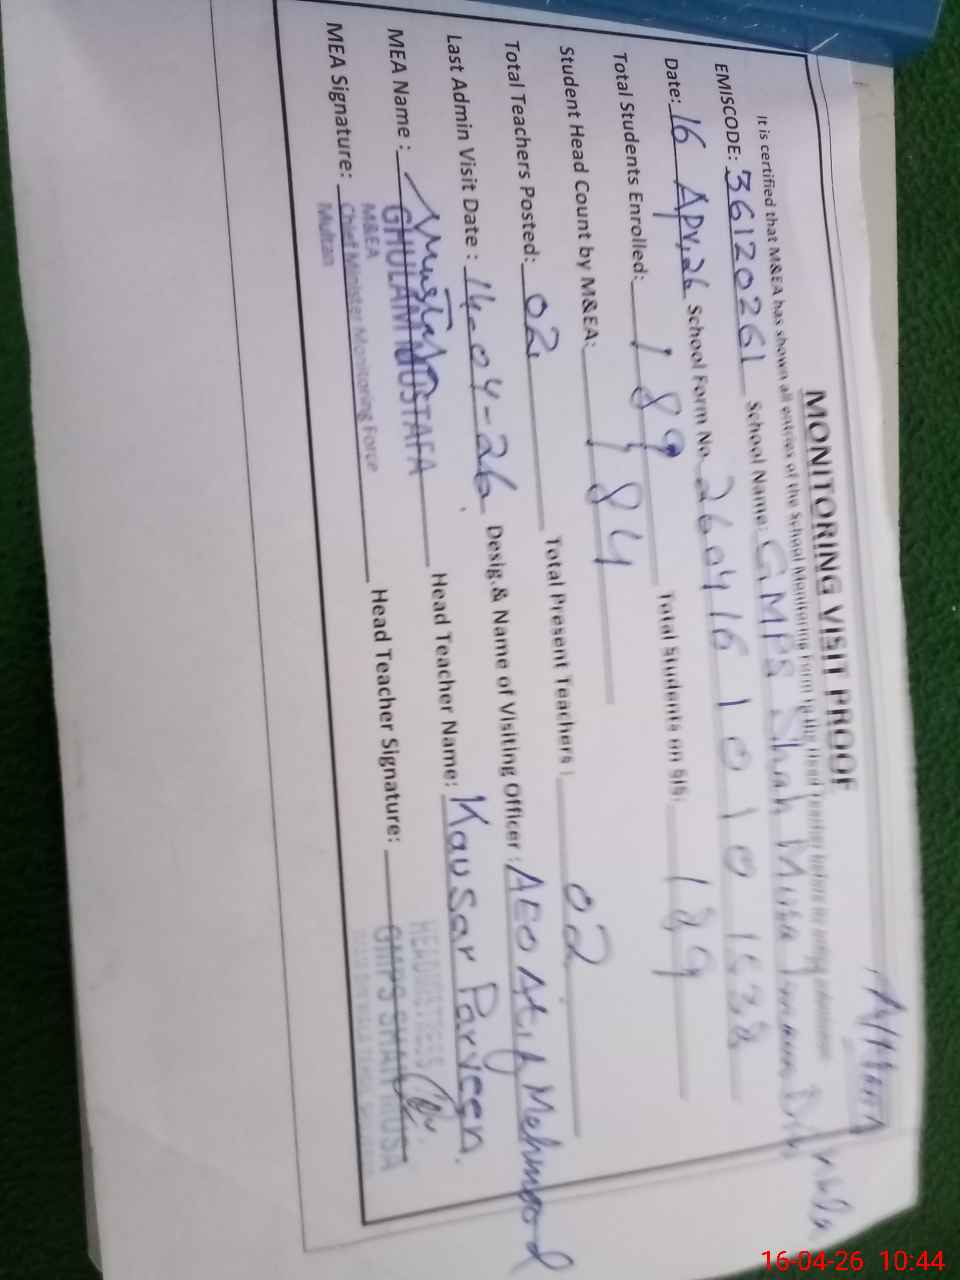 MONITORING VISIT PROOF
It is certified that M&EA has shown all entries of the School Monitoring Form to the Head Teacher before
EMISCODE: 36120261 School Name: GMPS Shah Musa
Date: 16 Apr, 26 School Form No. 2604161010
Total Students Enrolled: 189 Total Students on SIS: 189
Student Head Count by M&EA: 184
Total Teachers Posted: 02 Total Present Teachers: 02
Last Admin Visit Date: 14-04-26 Desig.& Name of Visiting Officer: AEO Atif Mehmood
MEA Name: GHULAM MUSTAFA Head Teacher Name: Kausar Parveen.
MEA Signature: Head Teacher Signature:
M&EA
Chief Minister Monitoring Force
Multan
HEADMISTRESS
GMPS SHAH MUSA
16-04-26 10:44